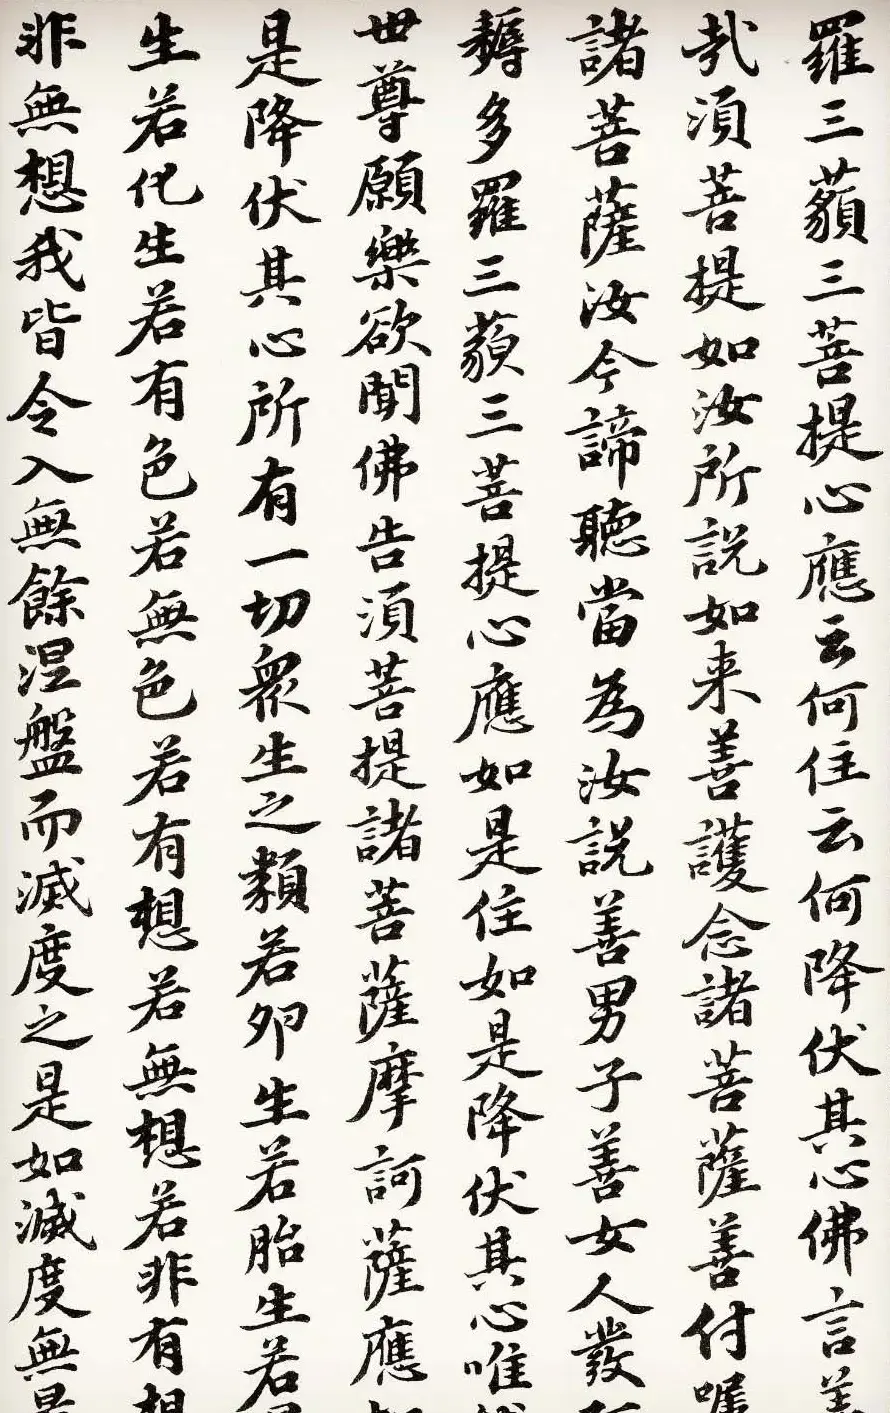 羅三藐三菩提心應云何住云何降伏其心佛言善
哉須菩提如汝所說如来善護念諸菩薩善付囑
諸菩薩汝今諦聽當為汝說善男子善女人發阿
耨多羅三藐三菩提心應如是住如是降伏其心唯然
世尊願樂欲聞佛告須菩提諸菩薩摩訶薩應如
是降伏其心所有一切衆生之類若卵生若胎生若濕
生若化生若有色若無色若有想若無想若非有想
非無想我皆令入無餘涅盤而滅度之是如滅度無量